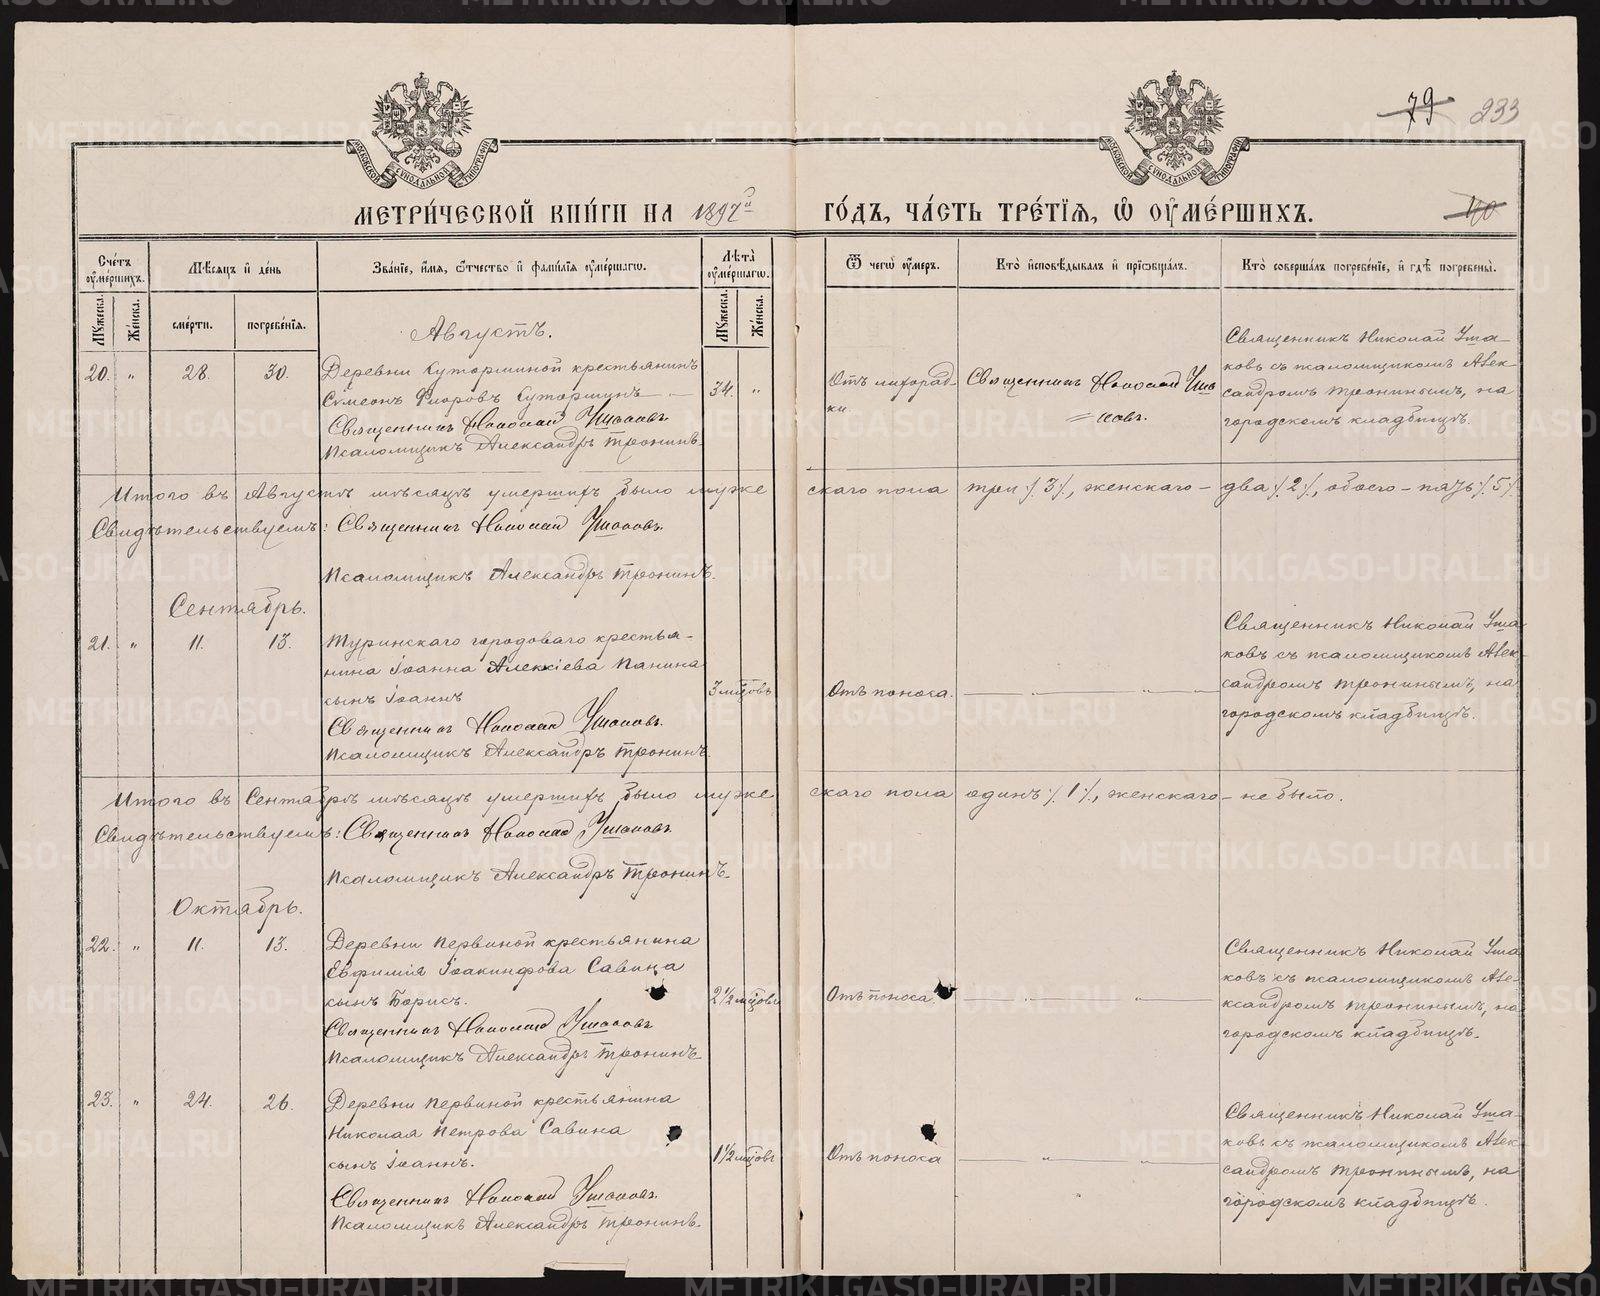 79 233
МЕТРИ́ЧЕСКОЙ КНИ́ГИ НА 1897й ГО́ДЪ, ЧА́СТЬ ТРЕ́ТІѦ, Ѡ҆ ОУ҆МЕ́РШИХЪ.
140
Сче́тъ оу҆ме́ршихъ.
Мѣ́сѧцъ и҆ де́нь
Зва́нїе, и҆́мѧ, ѻ҆́тчество и҆ фами́лїѧ оу҆ме́ршагѡ.
Лѣ́та оу҆ме́ршагѡ.
Ѿ чегѡ̀ оу҆́меръ.
Кто̀ и҆сповѣ́дывалъ и҆ прїѡбща́лъ.
Кто̀ соверша́лъ погребе́нїе, и҆ гдѣ̀ погребены̀.
Мꙋ́жеска.
Же́нска.
сме́рти.
погребе́нїѧ.
Мꙋ́жеска.
Же́нска.
Августъ.
20. " 28. 30.
Деревни Куторминой крестьянинъ
Сѵмеонъ Флоровъ Куторминъ
Священникъ Николай Ушаковъ
Псаломщикъ Александръ Тронинъ
34. "
Отъ лихорад-
ки.
Священникъ Николай Уша
=ковъ.
Священникъ Николай Уша-
ковъ съ псаломщикомъ Алек-
сандромъ Тронинымъ, на
городскомъ кладбищѣ.
Итого въ Августѣ мѣсяцѣ умершихъ было муже скаго пола три ./. 3 ./., женскаго - два ./. 2 ./., обоего - пять ./. 5 ./.
Свидѣтельствуемъ: Священникъ Николай Ушаковъ
Псаломщикъ Александръ Тронинъ.
Сентябрь.
21. " 11. 13.
Туринскаго городоваго крестья-
нина Іоанна Алексіева Панина
сынъ Іоаннъ
Священникъ Николай Ушаковъ
Псаломщикъ Александръ Тронинъ
3 мѣсцовъ
Отъ поноса.
Священникъ Николай Уша-
ковъ съ псаломщикомъ Алек-
сандромъ Тронинымъ, на
городскомъ кладбищѣ.
Итого въ Сентябрѣ мѣсяцѣ умершихъ было муже скаго пола одинъ ./. 1 ./., женскаго - не было.
Свидѣтельствуемъ: Священникъ Николай Ушаковъ
Псаломщикъ Александръ Тронинъ.
Октябрь.
22. " 11. 13.
Деревни Первиной крестьянина
Евфимія Іоакинфова Савина
сынъ Борисъ.
Священникъ Николай Ушаковъ
Псаломщикъ Александръ Тронинъ
2 1/2 мѣсцовъ
Отъ поноса.
Священникъ Николай Уша
ковъ съ псаломщикомъ Але-
ксандромъ Тронинымъ, на
городскомъ кладбищѣ.
23. " 24. 26.
Деревни Первиной крестьянина
Николая Петрова Савина
сынъ Іоаннъ.
Священникъ Николай Ушаковъ
Псаломщикъ Александръ Тронинъ.
1 1/2 мѣсцовъ
Отъ поноса
Священникъ Николай Уша-
ковъ съ псаломщикомъ Алек-
сандромъ Тронинымъ, на
городскомъ кладбищѣ.